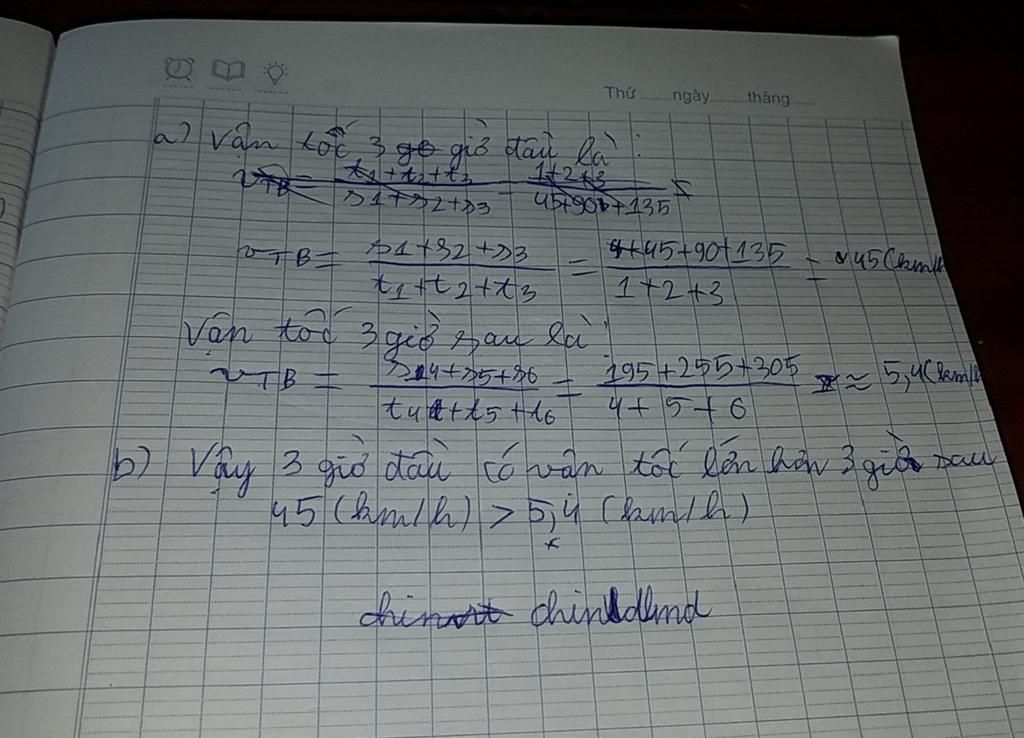 Thứ ngày tháng
a) Vận tốc 3 giờ đầu là:
vTB = t1+t2+t3 / s1+s2+s3 = 1+2+3 / 45+90+135 =
vTB = s1+s2+s3 / t1+t2+t3 = 45+90+135 / 1+2+3 = 45(km/h
Vận tốc 3 giờ sau là
vTB = s4+s5+s6 / t4+t5+t6 = 195+255+305 / 4+5+6 ≈ 5,4(km/h
b) Vậy 3 giờ đầu có vận tốc lớn hơn 3 giờ sau
45 (km/h) > 5,4 (km/h)